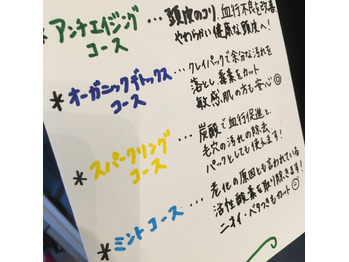 *アンチエイジング
コース
…頭皮のコリ、血行不良を改善
やわらかい健康な頭皮へ!
*オーガニックデトックス
コース
…クレイパックで余分な汚れを
落とし毒素をカット
敏感肌の方も安心◎
*スパークリング
コース
…炭酸で血行促進と、
毛穴の汚れの除去
パックとしても使えます!
*ミントコース
…老化の原因とも言われている
活性酸素を取り除きます!
ニオイ・ベタつきもカット◎